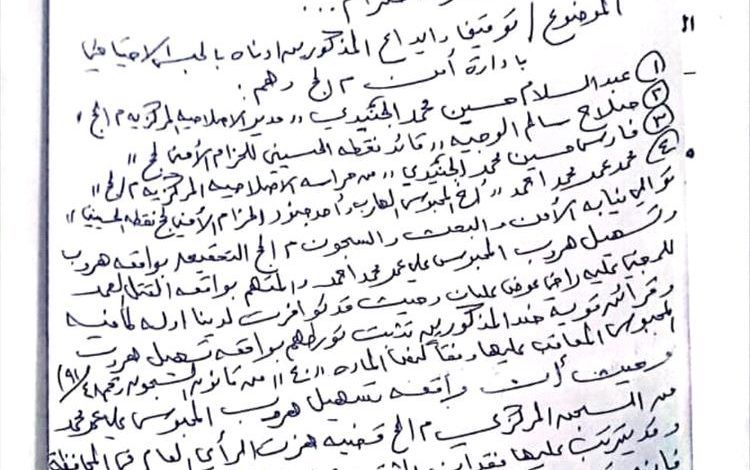 الموضوع / توقيف وايداع المذكورين ادناه بالحبس الاحتياطي
بادارة أمن م لحج وهم :
① عبدالسلام حسين محمد الجنيدي ,, مدير الاصلاحيه المركزيه م لحج ,,
② صلاح سالم الوجيه ,, قائد نقطه الحسيني للحزام الأمني لحج ,,
③ فارس حسين محمد الجنيدي ,, من حراسه الاصلاحيه المركزيه م لحج ,,
④ محمد عمر محمد احمد ,, أخ المحبوس الهارب وأحد جنود الحزام الأمني لحج نقطه الحسيني ,,
توالي نيابه الأمن والبحث والسجون م لحج التحقيق بواقعه هروب
وتسهيل هروب المحبوس علي عمر محمد احمد والمتهم بواقعه القتل العمد
للمجني عليه راضي عوض عليان وحيث قد توافرت لدينا ادله كافيه
وقرائن قوية ضد المذكورين تثبت تورطهم بواقعه تسهيل هروب
المحبوس المعاقب عليها وفقاً الماده ,,٤٠,, من قانون السجون رقم ٤٨/٩١
وحيث أن واقعه تسهيل هروب المحبوس علي عمر محمد
من السجن المركزي م لحج قضيه هزت الرأي العام في المحافظة
وقد يترتب عليها